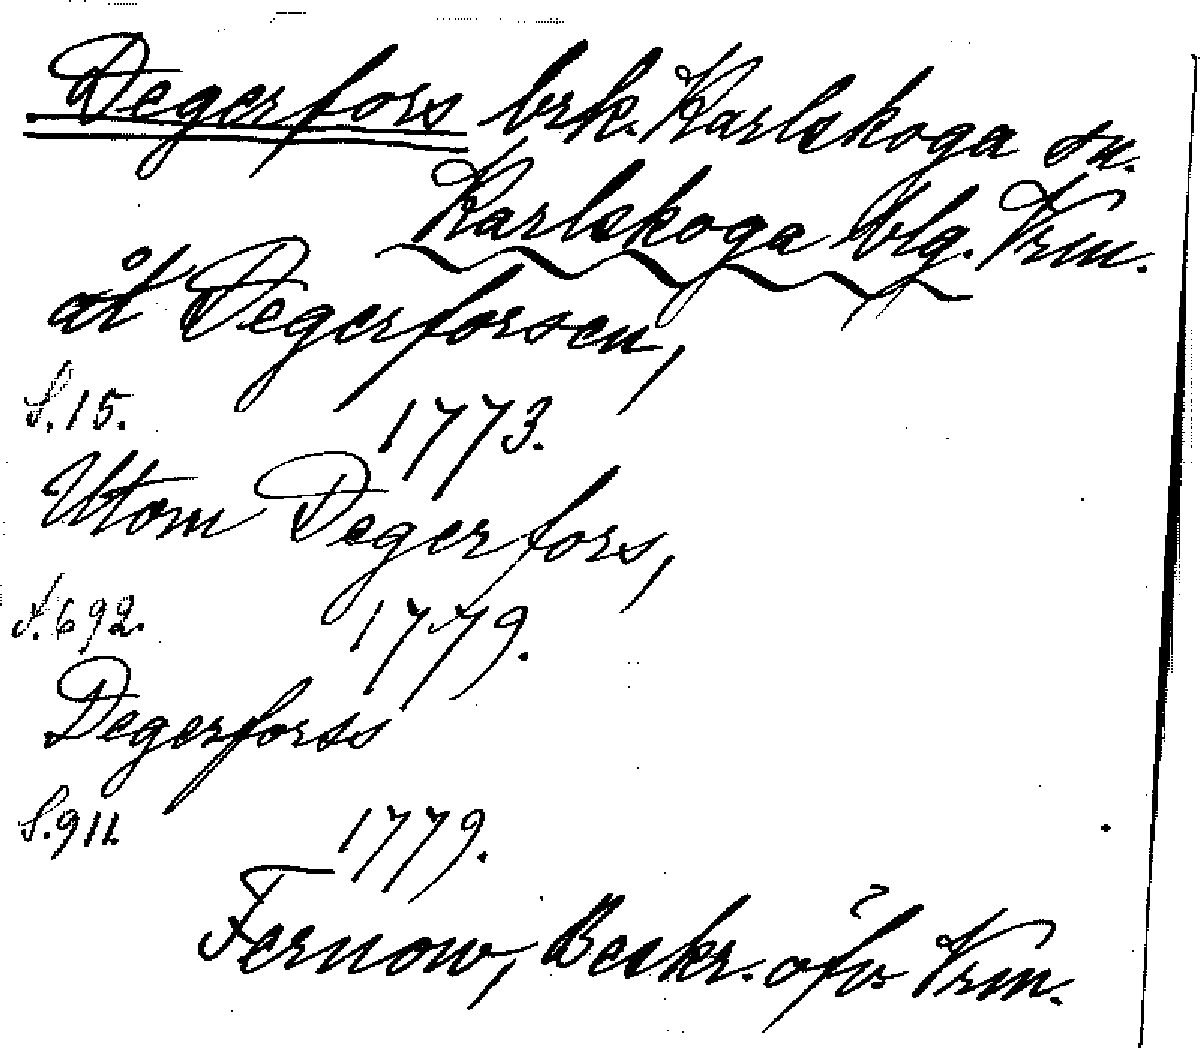 Degerfors brk. Karlskoga sn.
Karlskoga blg. Vrm.
åt Degerforsen,
S. 15. 1773.
Utom Degerfors,
S. 692. 1779.
Degerforss
S. 911. 1779.
Fernow, Beskr. öfv. Vrm.